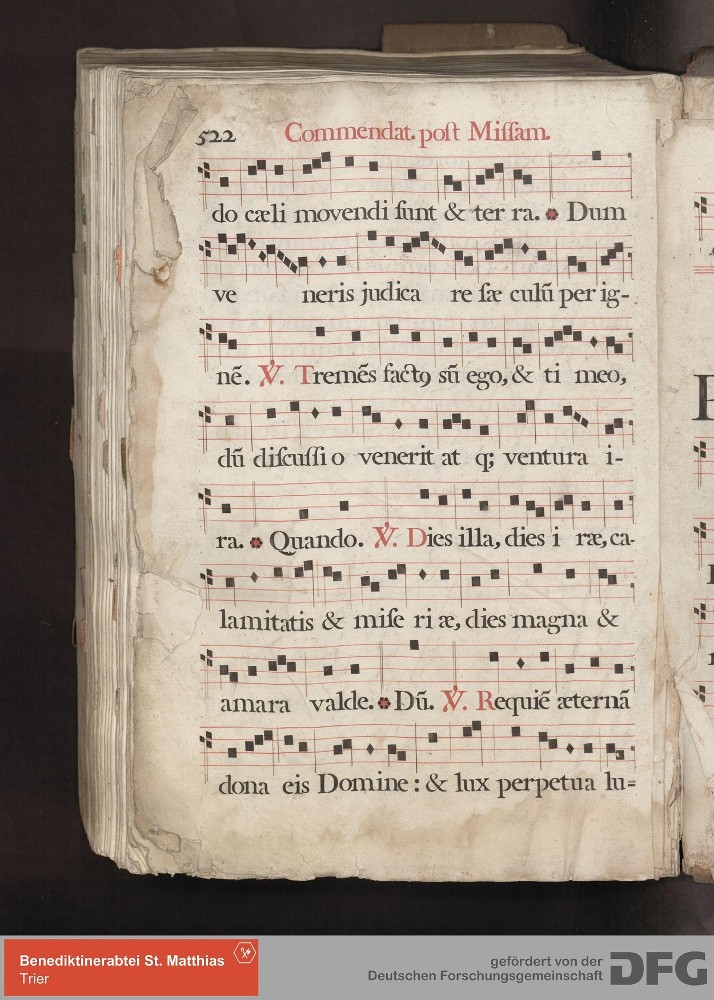 522 Commendat. post Missam.
do cæli movendi sunt & ter ra. Dum
ve neris judica re sæ culũ per ig-
nẽ. ℣. Tremẽs factꝯ sũ ego, & ti meo,
dũ discussi o venerit at q; ventura i-
ra. Quando. ℣. Dies illa, dies i ræ, ca-
lamitatis & mise ri æ, dies magna &
amara valde. Dũ. ℣. Requiẽ æternã
dona eis Domine: & lux perpetua lu=
Benediktinerabtei St. Matthias
Trier
gefördert von der
Deutschen Forschungsgemeinschaft
DFG